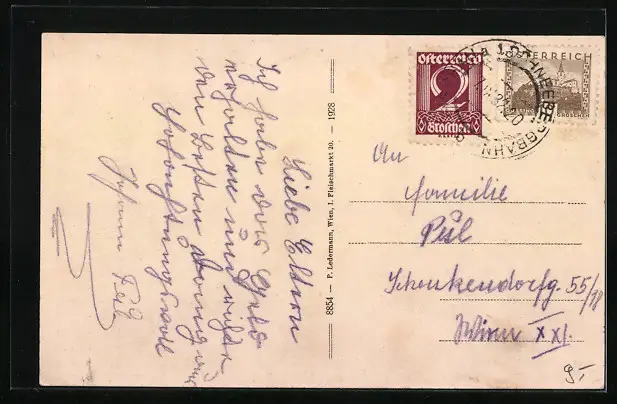 Liebe Eltern
Ich habe das Geld
erhalten und
den besten
Hochachtungsvoll
Johann Pül
8854 — P. Ledermann, Wien, I. Fleischmarkt 20. — 1928
Österreich
2
Groschen
ÖSTERREICH
GROSCHEN
SCHNEEBERGBAHN
An
Familie
Pül
Schenkendorfg. 55/18
Wien XXI.
9,-